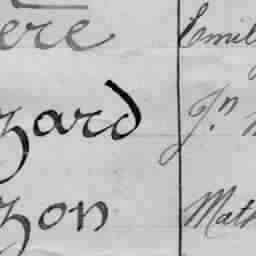 ere Emil
zard Jn.
zon Math